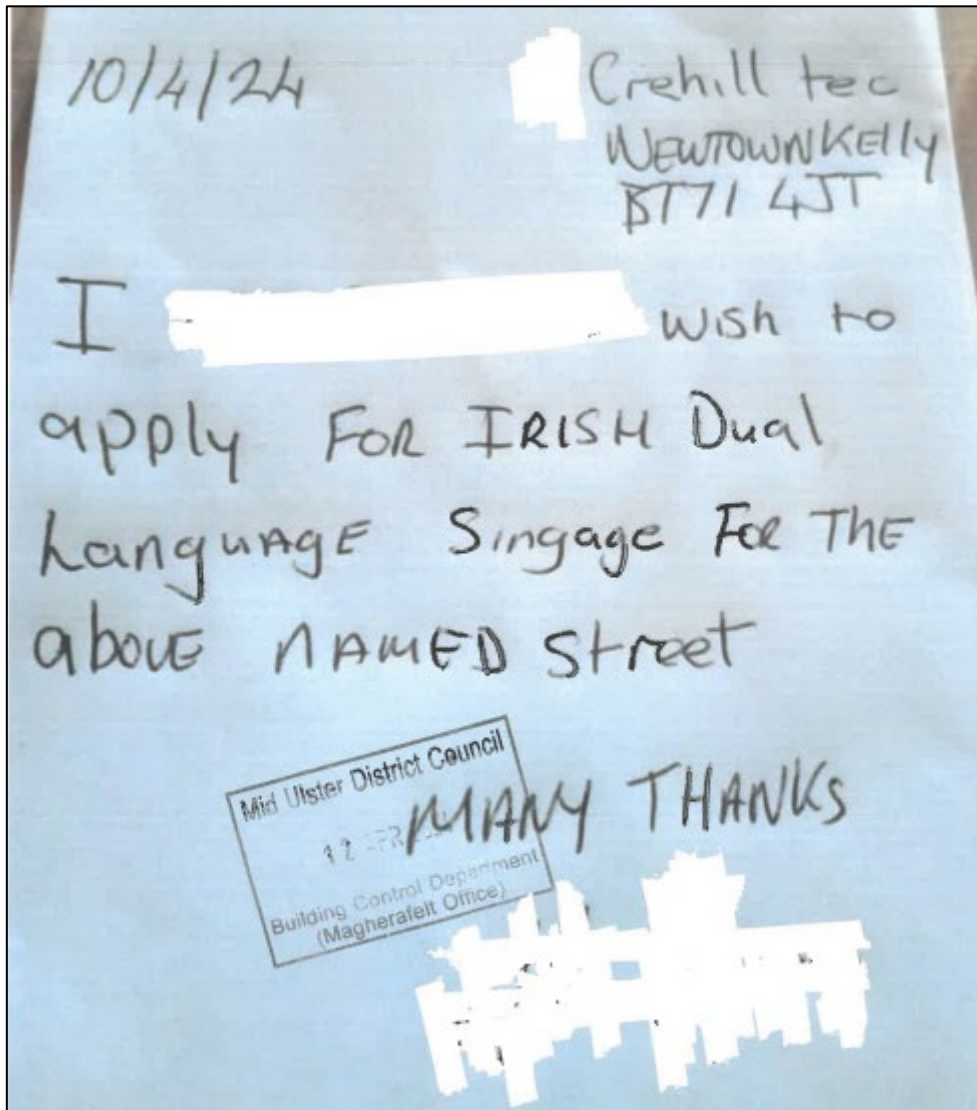 10/4/24
Crehill tec
NEWTOWNKElly
BT71 4JT
I wish to
apply FOR IRISH Dual
LanguAgE Singage FoR THE
aboUE nAMED Street
Mid Ulster District Council
MANY THANKS
12
Building Control Department
(Magherafelt Office)